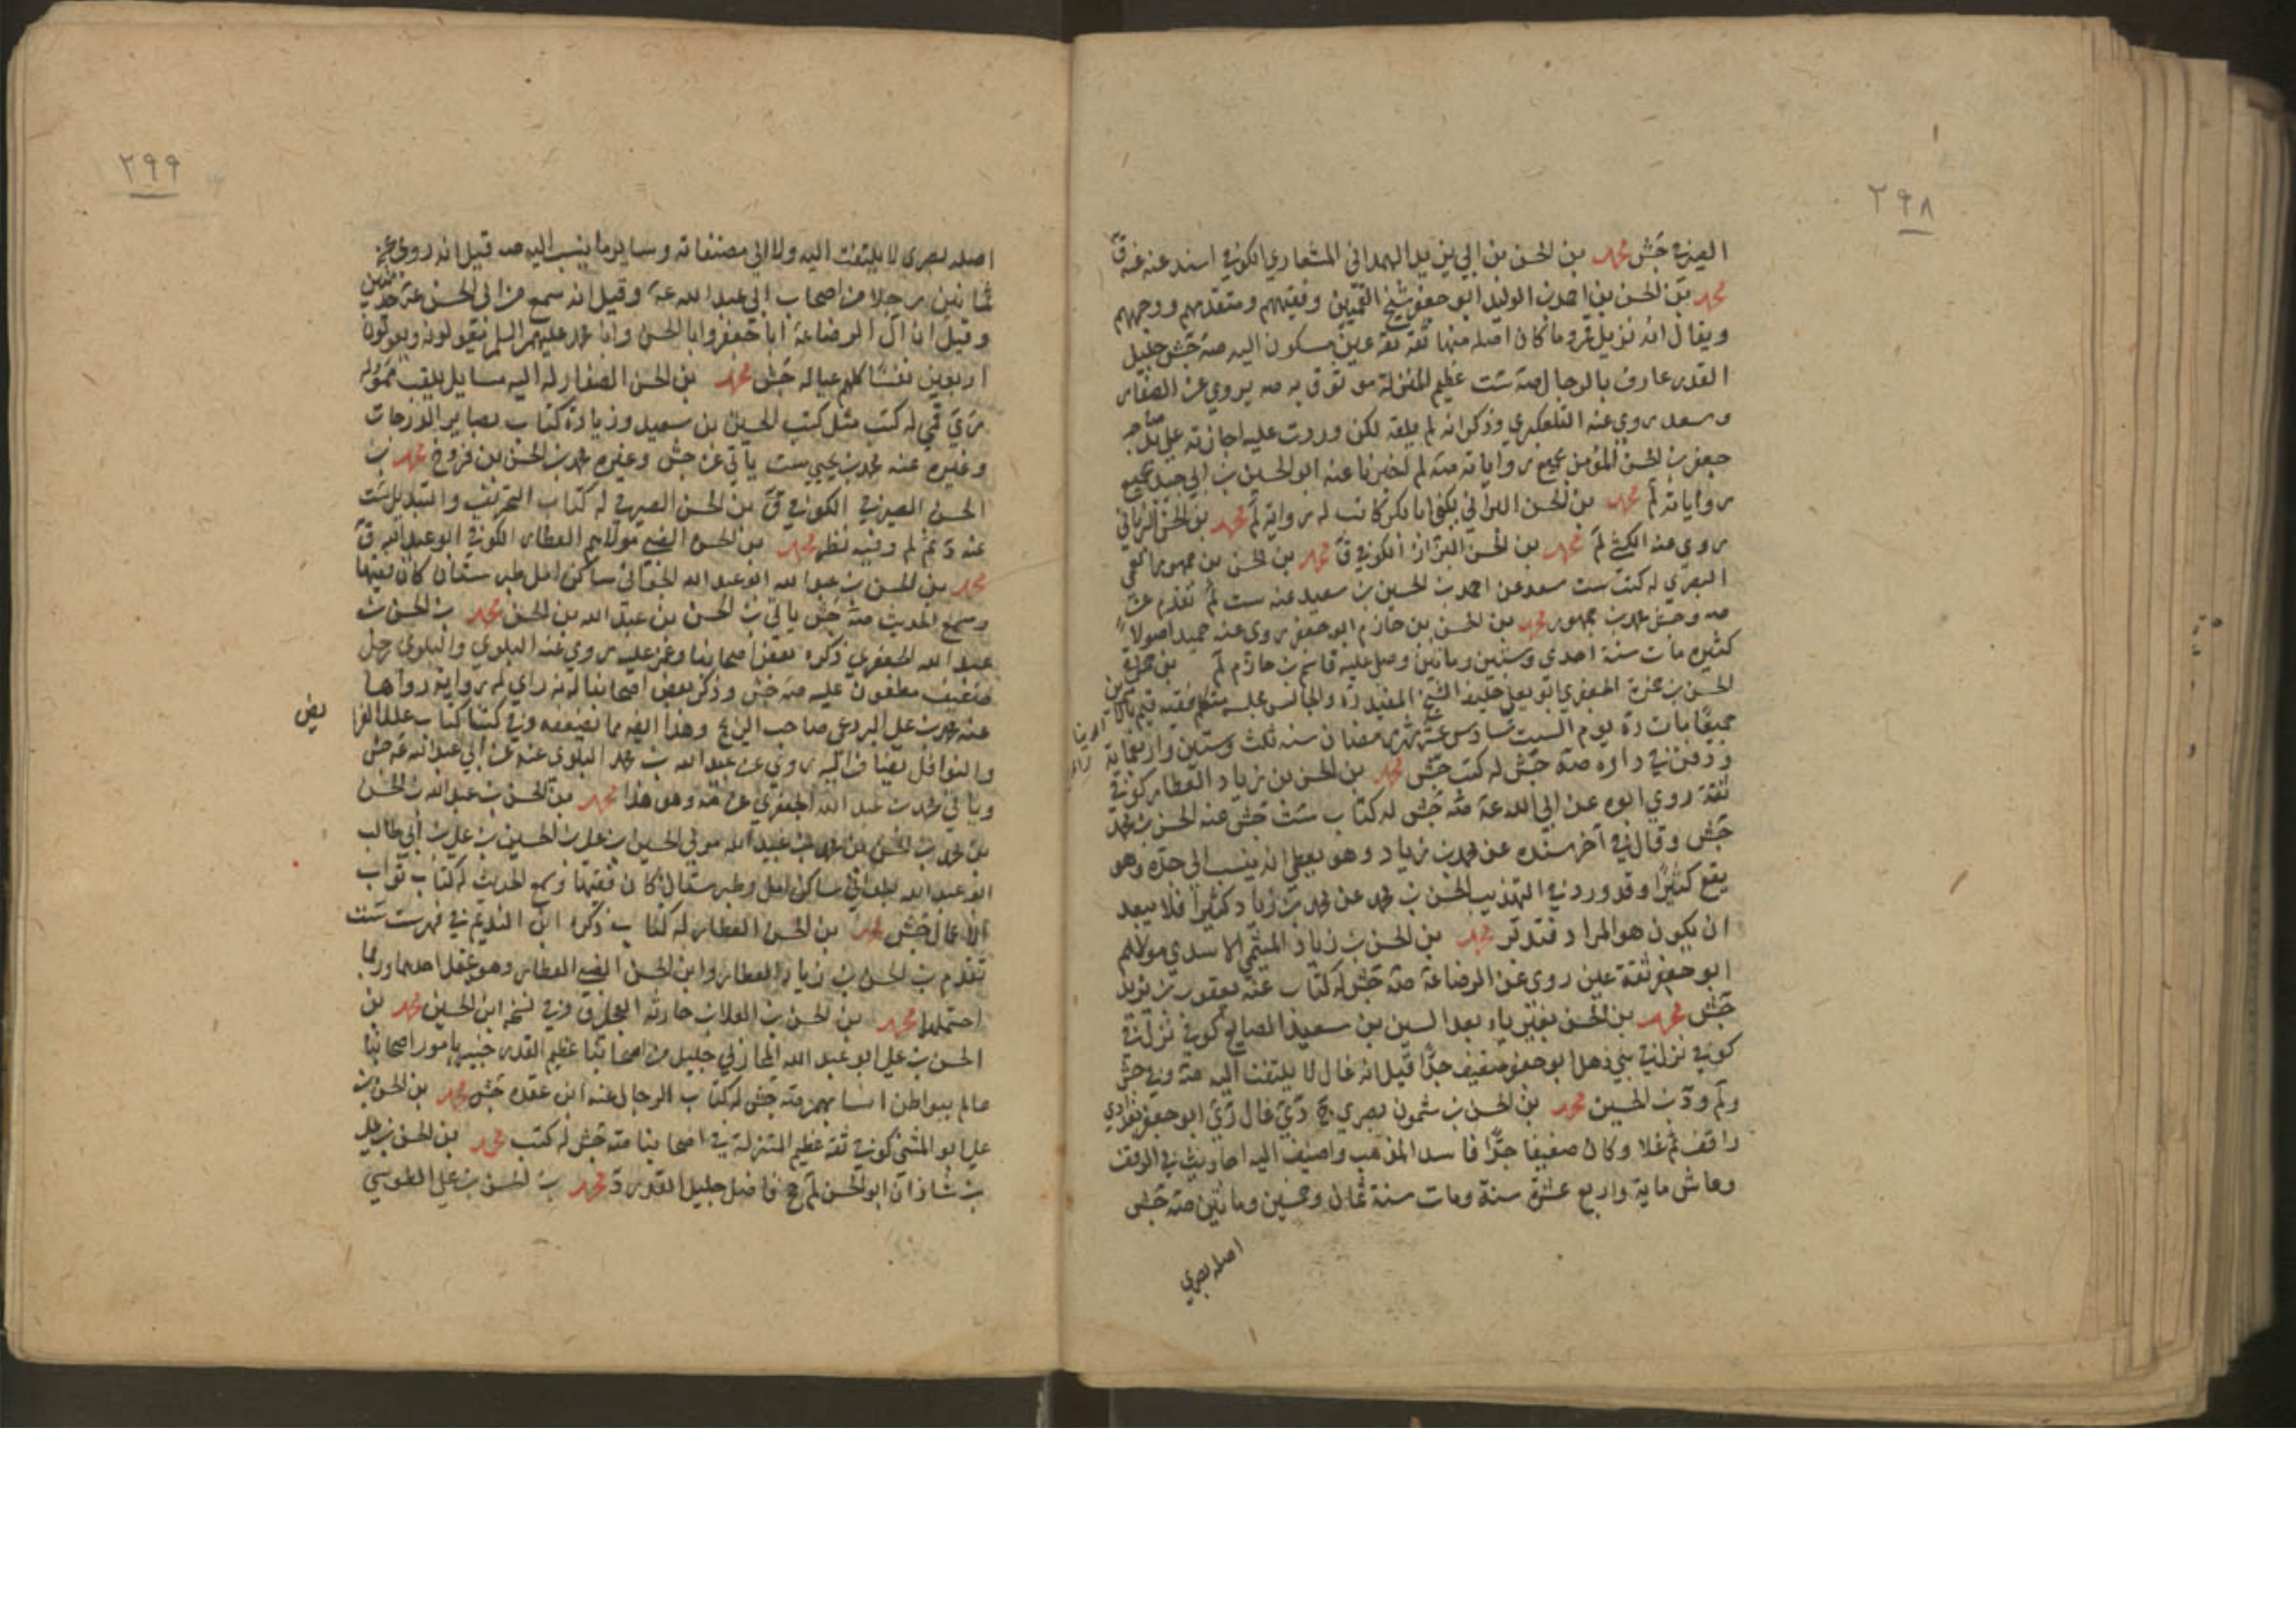 ٢٩٨
الصيرفي جش محمد بن الحسن بن ابي يزيد الهمداني المشعاري الكوفي اسند عنه ق
محمد بن الحسن بن احمد بن الوليد ابو جعفر شيخ القميين وفقيههم ومتقدمهم ووجههم
ويقال انه نزيل قم وما كان اصله منها ثقة ثقة عين مسكون اليه صه جش جليل
القدر عارف بالرجال ست عظيم المنزلة موثوق به صه يروي عن الصفار
وسعد روى عنه التلعكبري وذكر انه لم يلقه لكن وردت عليه اجازته على يد صاحبه
جعفر بن الحسن المؤمن بجميع رواياته اخبرنا عنه ابو الحسين بن ابي جيد بجميع
رواياته لم محمد بن الحسن البراني يكنى ابا بكر كاتب له رواية لم محمد بن الحسن البراثي
روى عنه الكشي لم محمد بن الحسن البزاز الكوفي ق محمد بن الحسن بن جمهور العمي
البصري له كتب ست سعد عن احمد بن الحسين بن سعيد عنه ست لم تقدم عن
صه وجش محمد بن جمهور محمد بن الحسن بن حازم ابو جعفر روى عنه حميد اصولا
كثيره مات سنة احدى وستين وماتين وصلى عليه قاسم بن حازم لم بن حمزة
الجعفري ابو يعلى خليفة الشيخ المفيد ره والجالس مجلسه متكلم فقيه قيم بالامرين
جميعا مات ره يوم السبت سادس عشر شهر رمضان سنه ثلث وستين واربعمائة
ودفن في داره صه جش له كتب جش محمد بن الحسن بن زياد العطار كوفي
ثقة روى ابوه عن ابي عبد الله عه صه جش له كتاب ست جش عنه الحسن بن محمد
جش وقال في آخر سنده عن محمد بن زياد وهو يعطي انه ينسب الى جده وهو
يقع كثيرا وقد ورد في التهذيب الحسن بن محمد عن محمد بن زياد كثيرا فلا يبعد
ان يكون هو المراد فتدبر محمد بن الحسن بن زياد الميثمي الاسدي مولاهم
ابو جعفر ثقة عين روى عن الرضا عه صه جش له كتاب عنه يعقوب بن يزيد
جش محمد بن الحسن بغير ياء بعد السين بن سعيد الصايغ كوفي نزل في
كوفي نزل في بني ذهل ابو جعفر ضعيف جدا قيل انه غال لا يلتفت اليه صه وفي جش
ولم ود بن الحسين محمد بن الحسن بن شمون بصري غال ابو جعفر بغدادي
واقف ثم غلا وكان ضعيفا جدا فاسد المذهب واضيف اليه احاديث في الوقف
وعاش ماية واربع عشرة سنة ومات سنة ثمان وخمسين وماتين صه جش
اصله بصري
٢٩٩
اصله بصرى لا يلتفت اليه ولا الى مصنفاته وساير ما ينسب اليه صه قيل انه روى عن
ثمانين رجلا من اصحاب ابي عبد الله عه وقيل انه سمع من ابي الحسن عه حديثين
وقيل ان آل الرضا عه ابا جعفر وابا الحسن وابا محمد عليهم السلم يعولونه ويعولون
اربعين نفسا كلهم عياله جش محمد بن الحسن الصفار له اليه مسايل يلقب مموله
قمي له كتب مثل كتب الحسين بن سعيد وزيادة كتاب بصاير الدرجات
وغيره عنه محمد بن يحيى ست ياتي عن جش وغيره محمد بن الحسن بن فروخ محمد بن
الحسن الصيرفي الكوفي ق بن الحسن الصيرفي له كتاب التحريف والتبديل ست
عنه وفيه نظر محمد بن الحسن الضبي مولاهم العطار الكوفي ابو عبد الله ق
محمد بن الحسن بن عبد الله ابو عبد الله ساكن امل طبرستان كان فقيها
وسمع الحديث صه جش ياتي بن الحسن بن عبد الله بن الحسن محمد بن الحسن بن
عبد الله الجعفري ذكره بعض اصحابنا وغمز عليه روى عنه البلوي والبلوي رجل
ضعيف مطعون عليه صه جش وذكر بعض اصحابنا انه راى له رواية رواها
عنه محمد بن علي البردعي صاحب الزنج وهذا ايضا مما يضعفه وفي كتبنا كتاب علل الفرا يض
والنوافل يضاف اليه روى عن عبد الله بن محمد البلوي عنه عن ابي عبد الله عه جش
وياتي محمد بن عبد الله الجعفري عن وهو هذا محمد بن الحسن بن عبد الله بن الحسن
بن محمد بن الحسن بن محمد بن عبيد الله بن الحسين بن علي بن الحسين بن علي بن ابي طالب
ابو عبد الله ساكن امل وطبرستان كان فقيها وسمع الحديث له كتاب ثواب
الاعمال جش محمد بن الحسن العطار له كتاب ذكره ابن النديم في فهرست ست
تقدم بن الحسن بن زياد العطار وابن الحسن الضبي العطار وهو يحتمل احدهما وربما
احتملهما محمد بن الحسن بن العلا بن حارثه ق وفي نسخه ابن الحسين محمد بن
الحسن بن علي ابو عبد الله المحاربي جليل من اصحابنا عظيم القدر خبير بامور اصحابنا
عالم ببواطن انسابهم صه جش له كتاب الرجال عنه ابن عقده جش محمد بن الحسن بن
علي ابو المثنى كوفي ثقه عظيم المنزلة في اصحابنا صه جش له كتب محمد بن الحسن بن علي
بن شاذان ابو الحسن لم فاضل جليل القدر محمد بن الحسن بن علي الطوسي